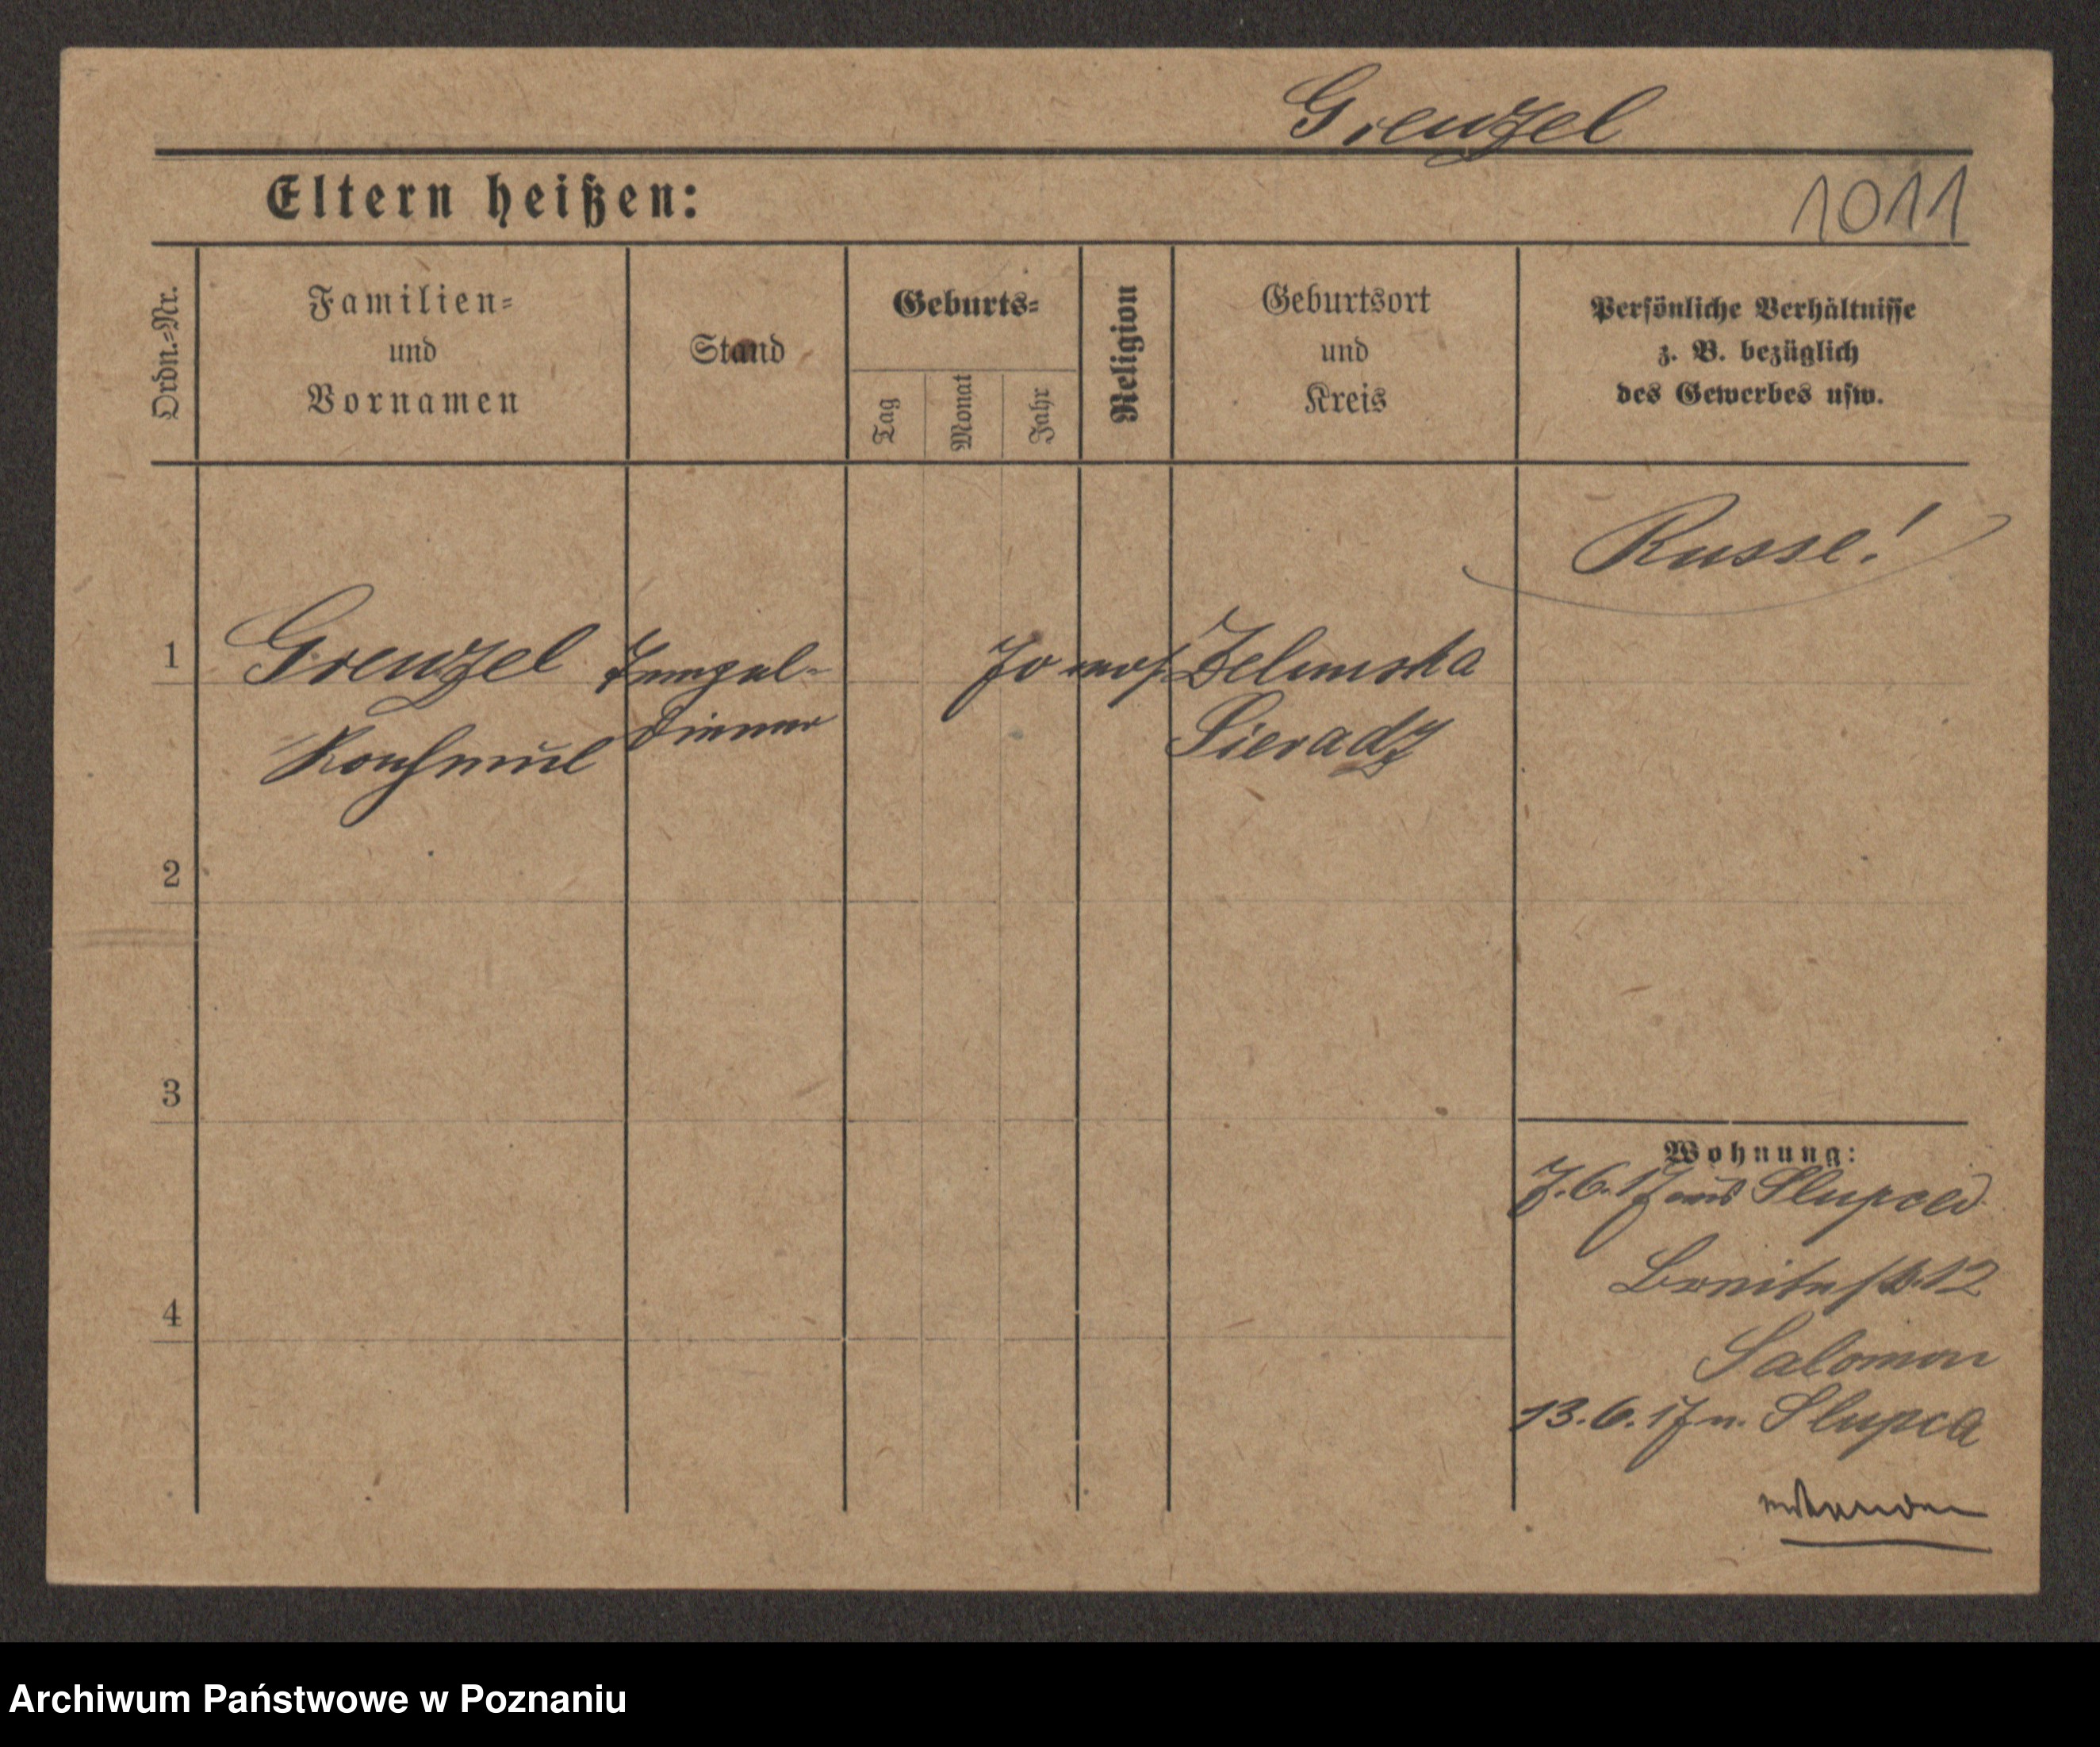 Grenzel
Eltern heißen:
1011
Ordn.=Nr.
Familien=
und
Vornamen
Stand
Geburts=
Tag
Monat
Jahr
Religion
Geburtsort
und
Kreis
Persönliche Verhältnisse
z. B. bezüglich
des Gewerbes usw.
Russe!
1
Grenzel
Tempel-
diener
70
mos.
Zelunska
Sieradz
2
3
4
Wohnung:
7.6.17 aus Slupca
12
Salomon
13.6.17 n. Slupca
Archiwum Państwowe w Poznaniu